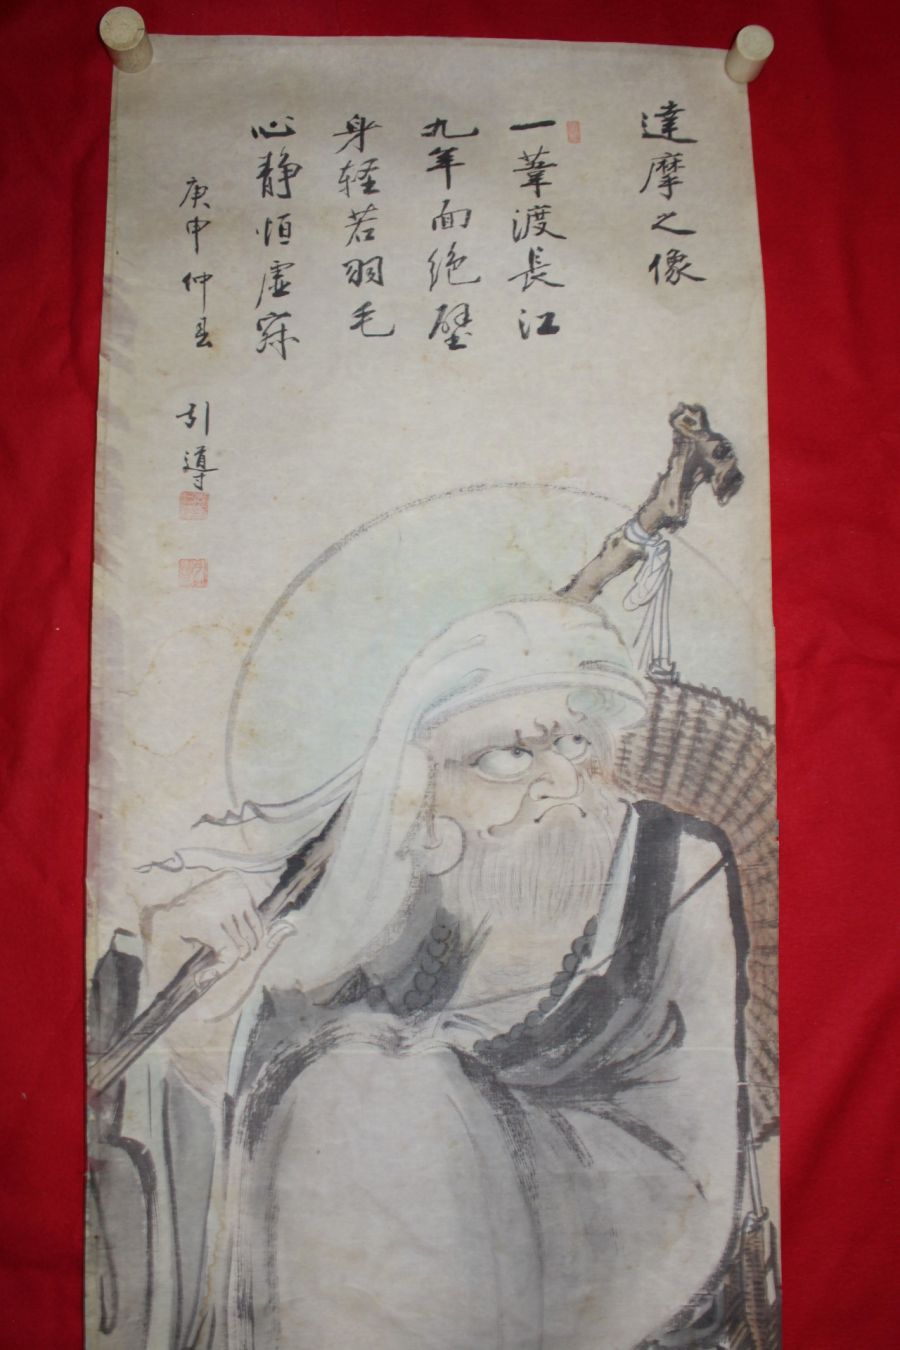 達摩之像
一葦渡長江
九年面絶壁
身軽若羽毛
心静恒虚寂
庚申仲春
引導